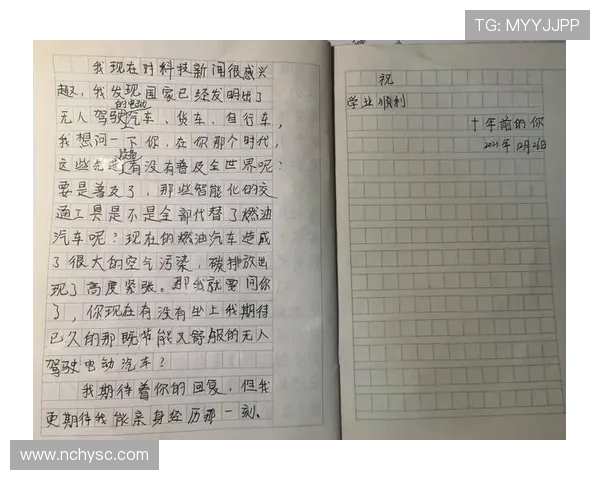 TG: MYYJJPP
我现在对科技新闻很感兴
趣，我发现国家已经发明出了
的电动
无人驾驶汽车、货车、自行车，
我想问一下你，在你那个时代，
设备
这些先进有没有普及全世界呢？
要是普及了，那些智能化的交
通工具是不是全部代替了燃油
汽车呢？现在的燃油汽车造成
了很大的空气污染，碳排放出
现了高度紧张。那我就要问你
了，你现在有没有坐上我期待
已久的那既节能又舒服的无人
驾驶电动汽车？
我期待着你的回复，但我
更期待我能亲身经历那一刻。
祝
学业顺利
十年前的你
2021年12月26日
www.nchysc.com